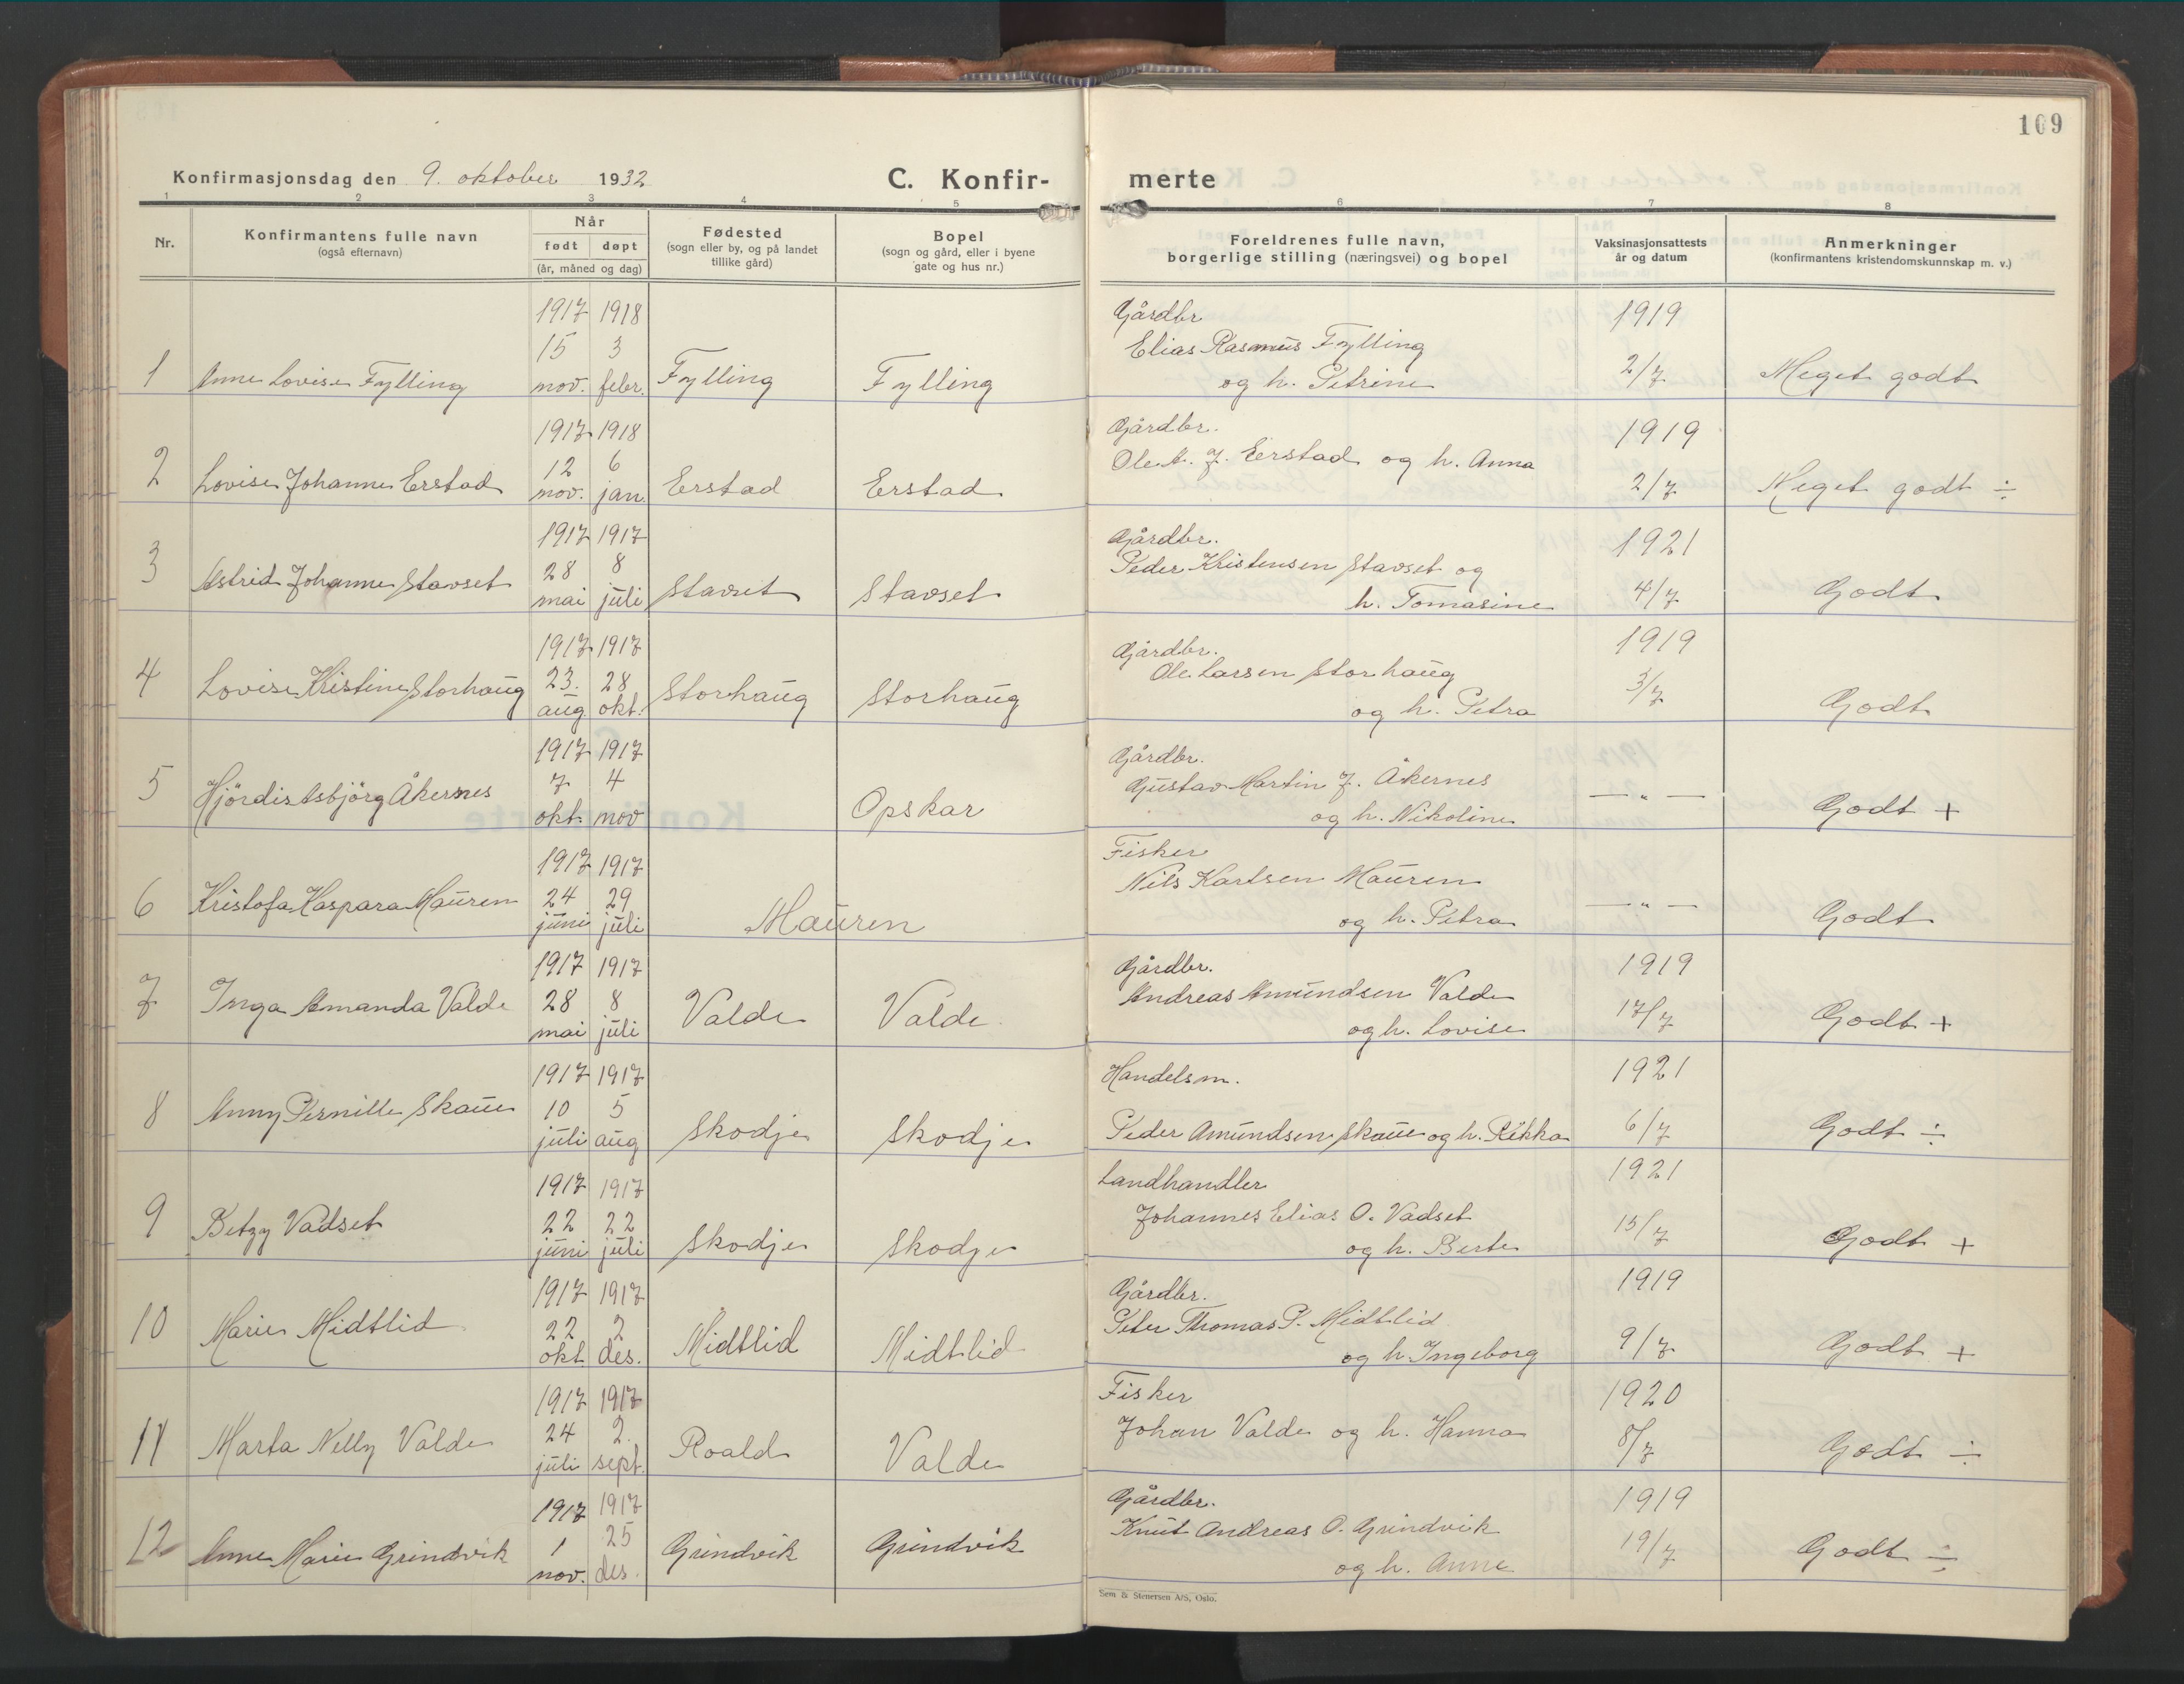 109
Konfirmasjonsdag den 9. oktober 1932
C. Konfir-
merte
1 2 3 4 5 6 7 8
Nr.
Konfirmantens fulle navn
(også efternavn)
Når
født døpt
(år, måned og dag)
Fødested
(sogn eller by, og på landet
tillike gård)
Bopel
(sogn og gård, eller i byene
gate og hus nr.)
Foreldrenes fulle navn,
borgerlige stilling (næringsvei) og bopel
Vaksinasjonsattests
år og datum
Anmerkninger
(konfirmantens kristendomskunnskap m. v.)
1917 1918 Gårdbr 1919
15 3 Elias Rasmus Fylling
1 Anne Lovise Fylling nov. febr. Fylling Fylling og h. Petrine 2/7 Meget godt
1917 1918 Gårdbr. 1919
12 6 Ole A. J. Eerstad og h. Anna
2 Lovise Johanne Erstad nov. jan. Erstad Erstad 2/7 Meget godt ÷
1917 1917 Gårdbr. 1921
28 8 Peder Kristensen Stavset og
3 Astrid Johanne Stavset mai juli Stavset Stavset h. Tomasine 4/7 Godt
1917 1917 Gårdbr. 1919
23. 28 Ole Larsen Storhaug
4 Lovise Kristine Storhaug aug. okt. Storhaug Storhaug og h. Petra 3/7 Godt
1917 1917 Gårdbr.
7 4 Gustav Martin J. Åkernes
5 Hjördis Asbjörg Åkernes okt. nov Opskar og h. Nikoline — „ — Godt +
1917 1917 Fisker
24 29 Nils Karlsen Mauren
6 Kristofa Kaspara Mauren juni juli Mauren og h. Petra — „ — Godt
1917 1917 Gårdbr. 1919
28 8 Andreas Amundsen Valde
7 Inga Amanda Valde mai juli Valde Valde og h. Lovise 17/7 Godt +
1917 1917 Handelsm. 1921
10 5
8 Anny Pernille Skaue juli aug Skodje Skodje Peder Amundsen Skaue og h. Rikka 6/7 Godt ÷
1917 1917 Landhandler 1921
22 22 Johannes Elias O. Vadset
9 Betzy Vadset juni juli Skodje Skodje og h. Berte 15/7 Godt +
1917 1917 Gårdbr. 1919
22 2 Peter Thomas P. Midtlid
10 Marie Midtlid okt. des. Midtlid Midtlid og h Ingeborg 9/7 Godt +
1917 1917 Fisker 1920
24 2. Johan Valde og h. Hanna
11 Marta Nelly Valde juli sept. Roald Valde 8/7 Godt ÷
1917 1917 Gårdbr. 1919
1 25 Knut Andreas O. Grindvik
12 Anne Marie Grindvik nov. des. Grindvik Grindvik og h. Anne 19/7 Godt ÷
Sem & Stenersen A/S, Oslo.